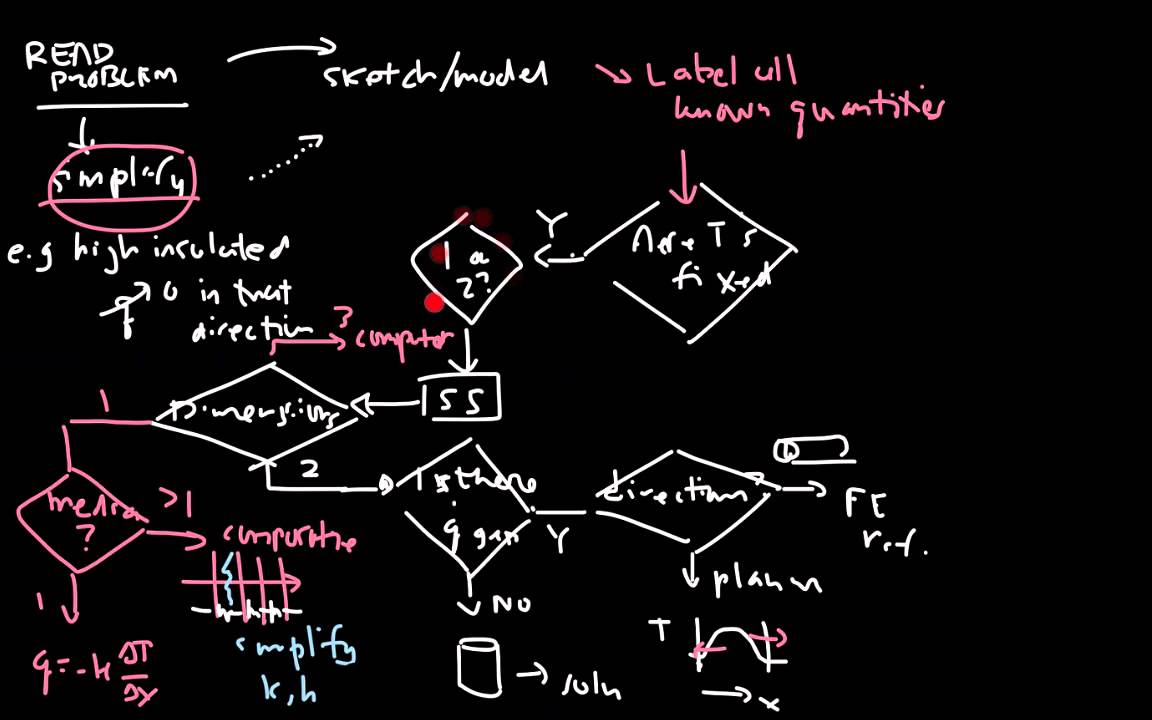 READ
PROBLEM
sketch/model
Label all
known quantities
simplify
Y
Are Ts
fixed
1 a
2?
e.g high insulated
q → 0 in that
direction
3
computer
SS
Dimensions
1
2
Is there
q gen
Y
direction
FE
ref.
media
?
>1
composite
NO
planar
1
simplify
k, h
q = -k ΔT
Δy
→ soln
T
x